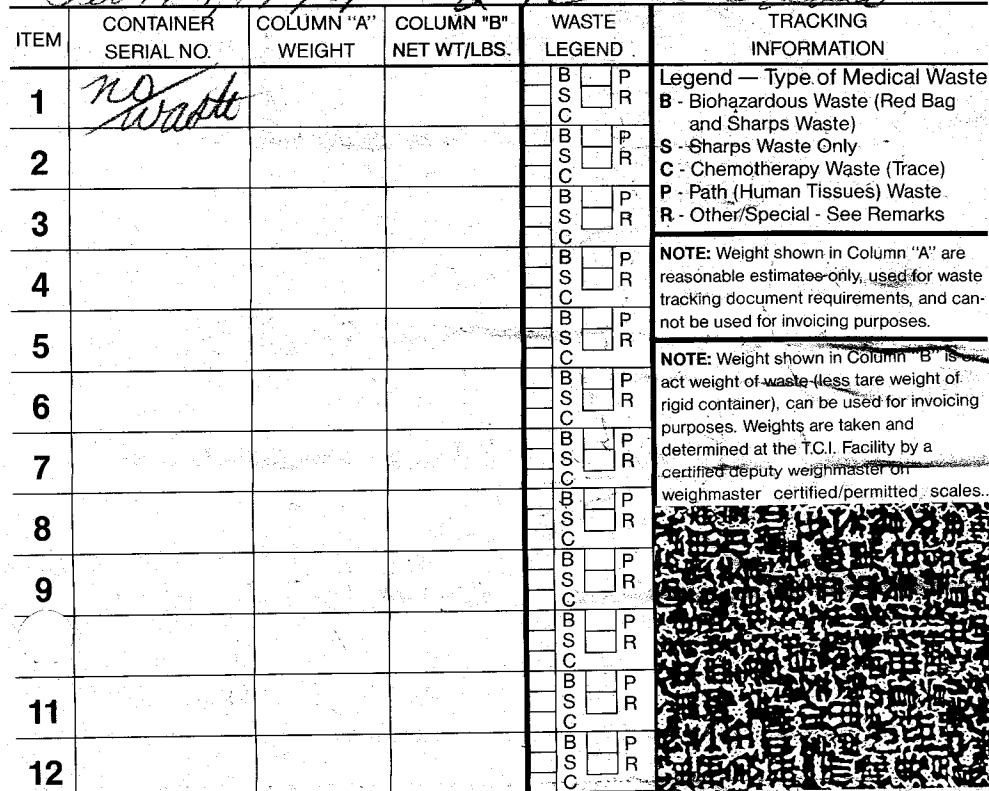 ITEM CONTAINER SERIAL NO. COLUMN "A" WEIGHT COLUMN "B" NET WT/LBS. WASTE LEGEND TRACKING INFORMATION
1 no waste B S C P R
2 B S C P R
3 B S C P R
4 B S C P R
5 B S C P R
6 B S C P R
7 B S C P R
8 B S C P R
9 B S C P R
B S C P R
11 B S C P R
12 B S C P R
Legend — Type of Medical Waste
B - Biohazardous Waste (Red Bag
and Sharps Waste)
S - Sharps Waste Only
C - Chemotherapy Waste (Trace)
P - Path (Human Tissues) Waste
R - Other/Special - See Remarks
NOTE: Weight shown in Column "A" are
reasonable estimates only, used for waste
tracking document requirements, and can-
not be used for invoicing purposes.
NOTE: Weight shown in Column "B" is ex-
act weight of waste (less tare weight of
rigid container), can be used for invoicing
purposes. Weights are taken and
determined at the T.C.I. Facility by a
certified deputy weighmaster on
weighmaster certified/permitted scales.